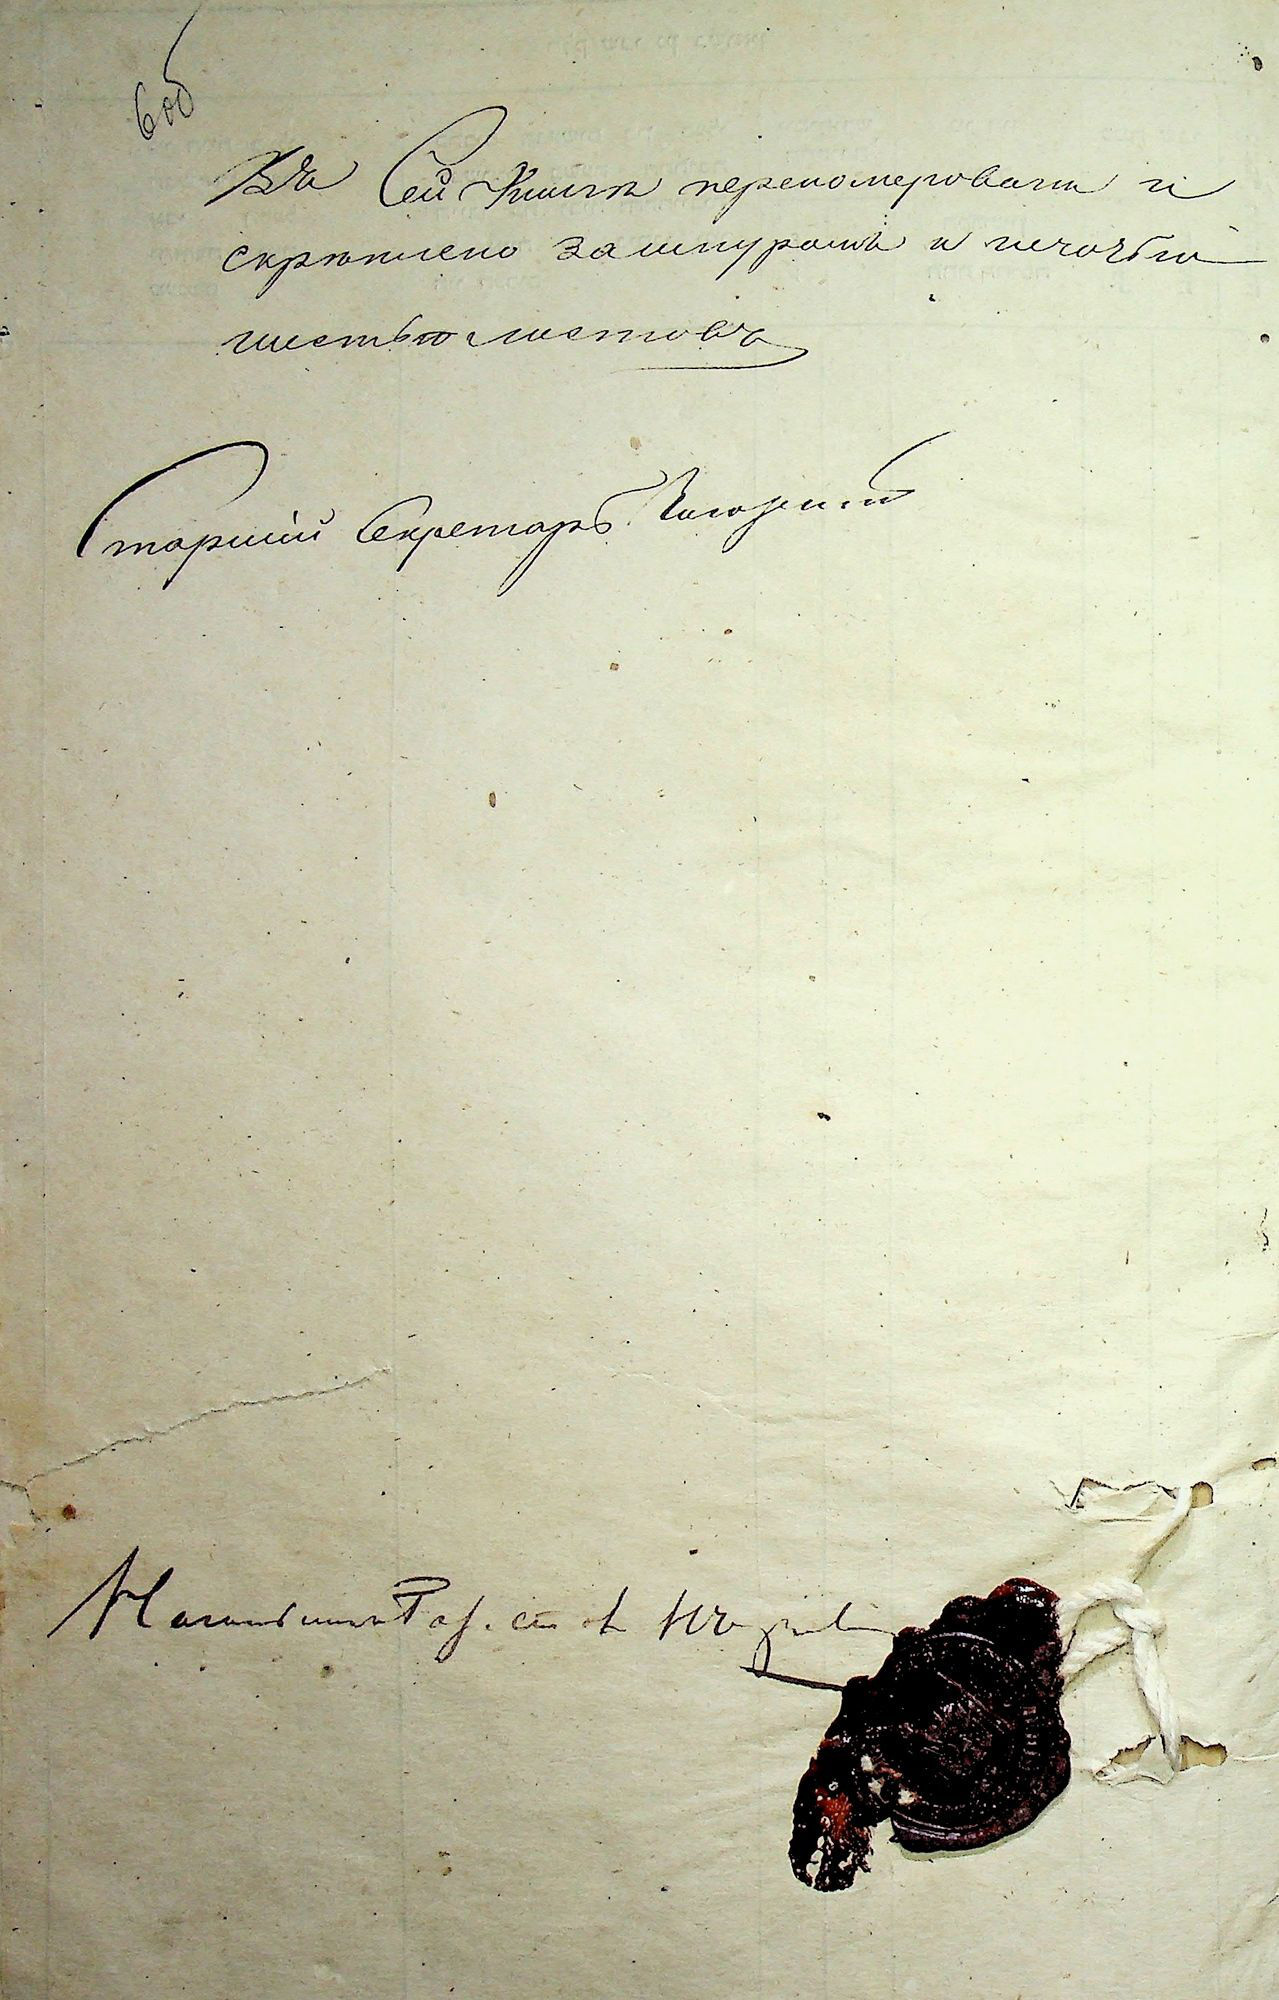 6 об
Въ Сей Книгѣ перепомеровано и
скрѣплено за шнуромъ и печатью
шестью листовъ
Старшій Секретарь